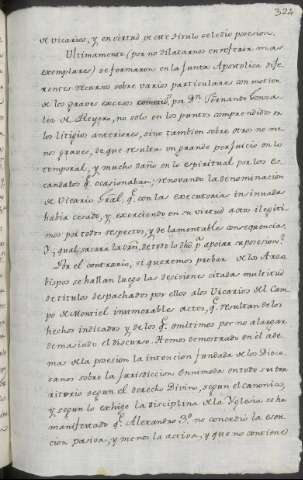 324
de Vicarios, y en virtud de este titulo se le dio posesion.
Ultimamente (por no dilatarnos en referir mas
exemplares) se formaron en la Junta Apostolica dife-
rentes recursos sobre varios particulares con motivo
de los graves excesos cometio, por Dn. Fernando Gonza-
lez de Reyero, no solo en los puntos comprendidos en
los litigios anteriores, sino tambien sobre otros no me-
nos graves, de que resulta un grande perjuicio en lo
temporal, y mucho daño en lo espiritual por los es-
candalos q. ocasionaban; renovando la denominacion
de Vicario Gral, q. con la executoria
havia cesado, y exerciendo en su virtud actos ilegiti-
mos por todos respectos, y de lamentable consequencia,
Y, qual sacara la de todo lo dho pa. apoiar la posesion.
Por el contrario, si queremos probar de los Arzo
bispos se hallan luego las decisiones citadas multitud
de titulos despachados por ellos a los Vicarios del Cam
po de Montiel innumerables actos, q. resultan de los
hechos indicados y de los q. omitimos por no alargar
demasiado el discurso. Hemos demostrado en el ade
mas de la posesion la intencion fundada de los Dioce
sanos sobre la Jurisdiccion Ordinaria en todo su ter
ritorio segun el derecho Divino, segun el canonico,
y segun lo exhige la disciplina de la Yglesia se ha
manifestado q. Alexandro 3o. no concedio la esen
cion pasiva, y menos la activa, y que no contiene